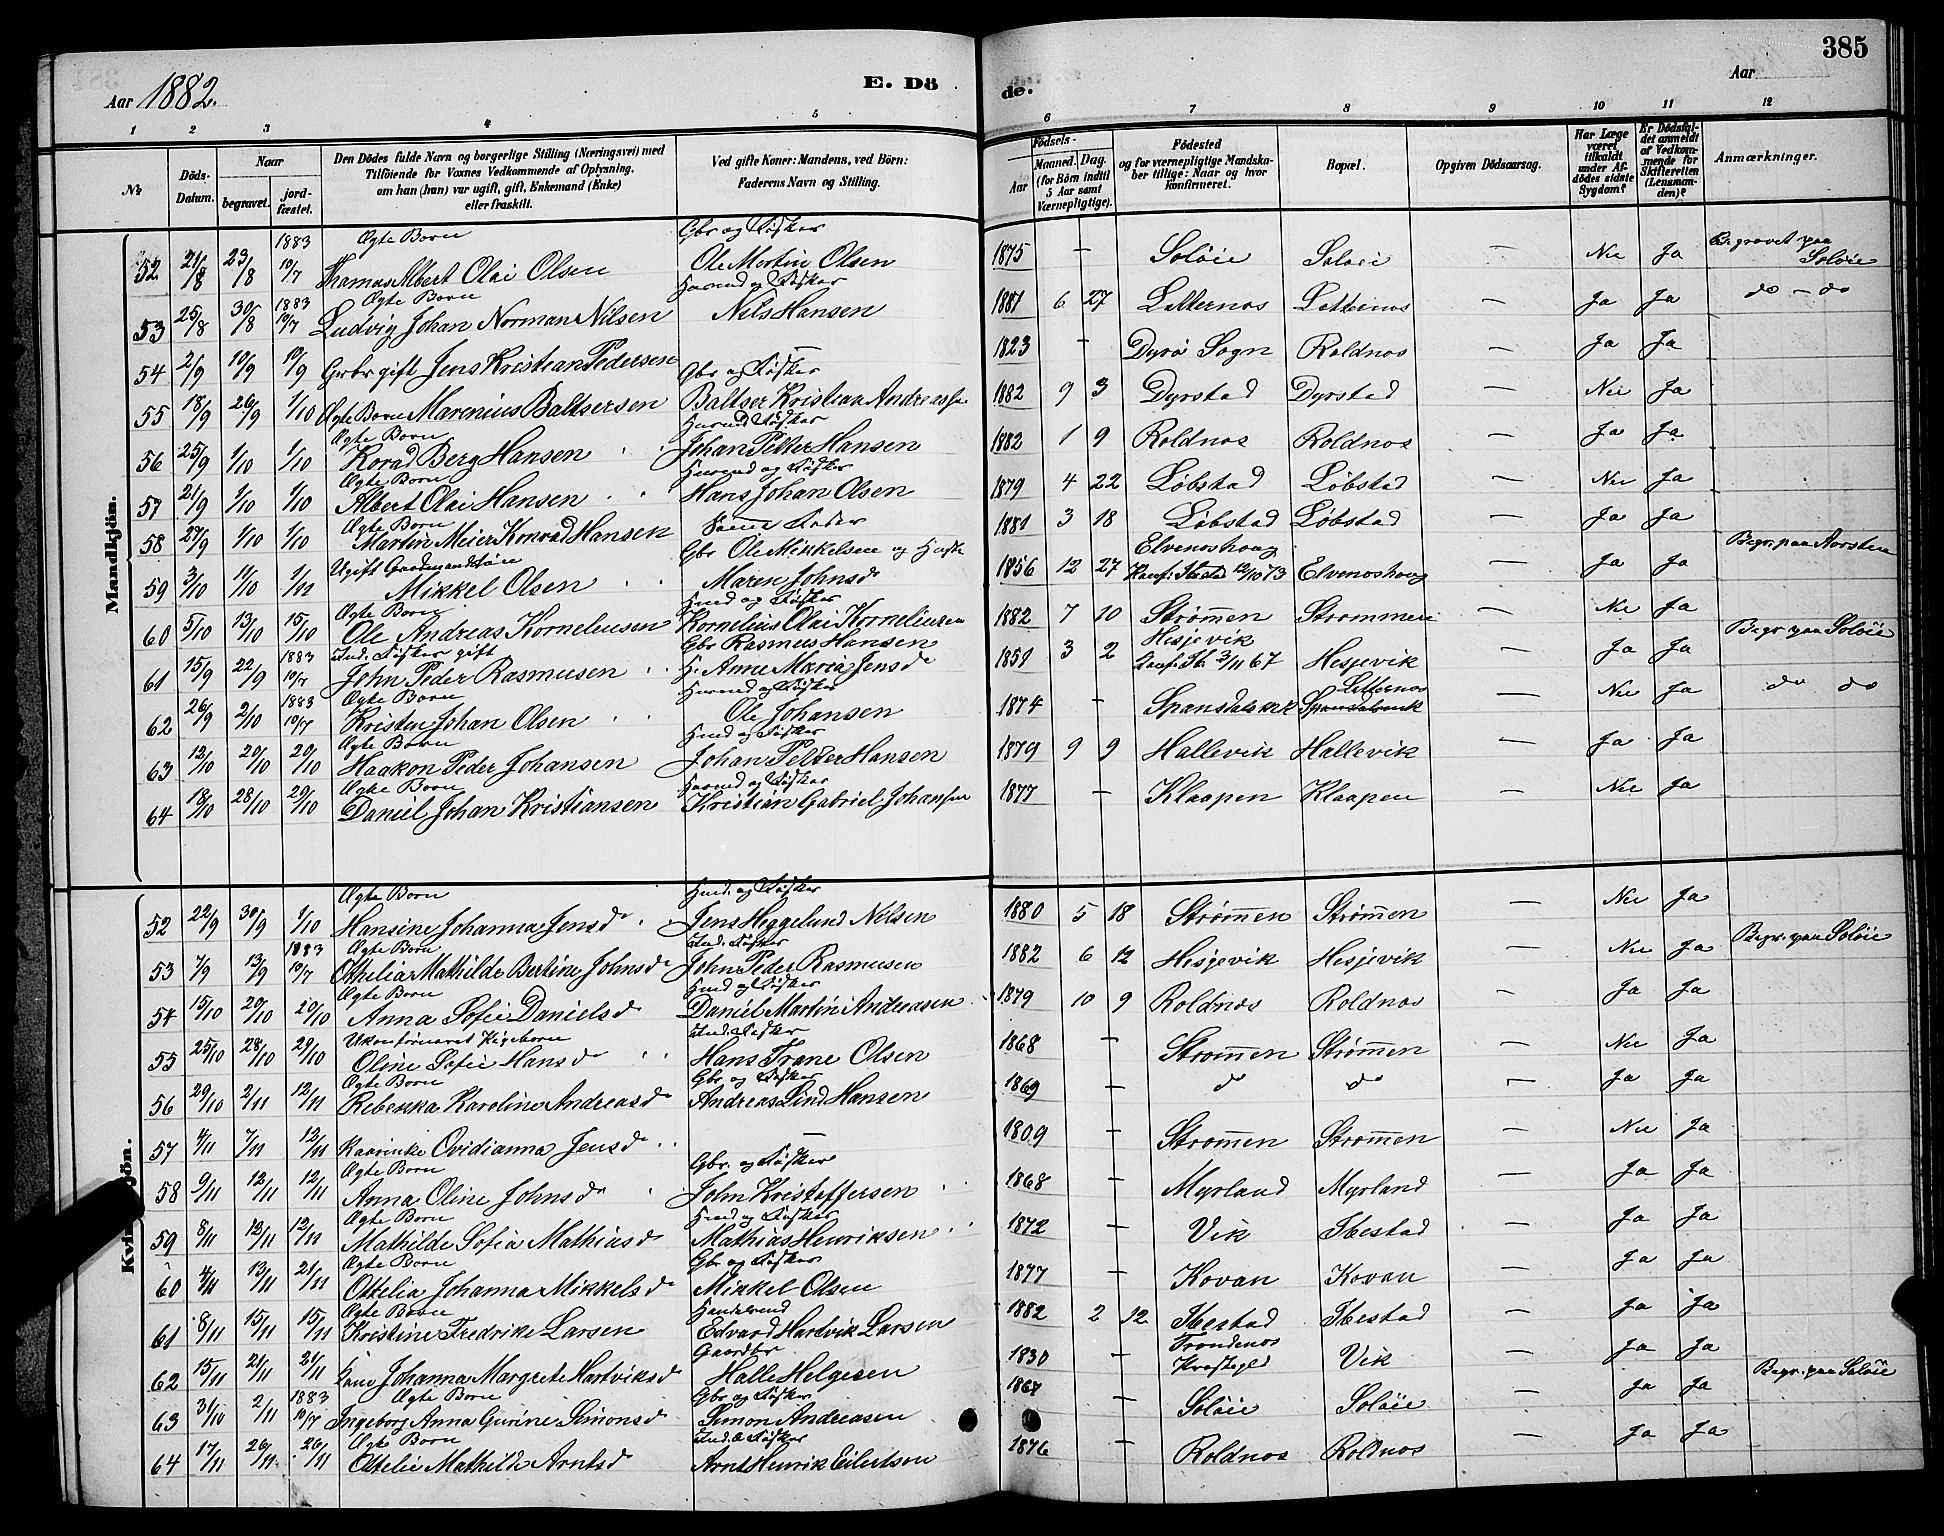 385
Aar 1882.
E. Döde.
Aar
1 2 3 4 5 6 7 8 9 10 11 12
No
Döds-Datum.
Naar
begravet.
jordfæstet.
Den Dödes fulde Navn og borgerlige Stilling (Næringsvei) med
Tilföiende for Voxnes Vedkommende af Oplysning,
om han (hun) var ugift, gift, Enkemand (Enke)
eller fraskilt.
Ved gifte Koner: Mandens, ved Börn:
Faderens Navn og Stilling.
Födsels-
Aar
Maaned. Dag.
(for Börn indtil 5 Aar samt Værnepligtige).
Födested
og for værnepligtige Mandskaber tillige: Naar og hvor konfirmeret.
Bopæl.
Opgiven Dödsaarsag.
Har Læge været tilkaldt under Afdödes sidste Sygdom?
Er Dödsfaldet anmeldt af Vedkommende for Skifteretten (Lensmanden)?
Anmærkninger.
Mandkjön.
1883 Ægte Barn Gbr og Fisker
52 21/8 23/8 10/7 Thomas Albert Olai Olsen Ole Martin Olsen 1875 – Soløie Soløie – Nei Ja Begravet paa Soløie
1883 Ægte Barn Husmd og Fisker
53 25/8 30/8 10/7 Ludvig Johan Norman Nilsen Nils Hansen 1881 6 27 Løtternos Løtternos – Ja Ja do – do
54 2/9 10/9 10/9 Grbr gift Jens Kristian Pedersen – 1823 – Dyrø Sogn Roldnos – Ja Ja
Gbr og Fisker
55 18/9 26/9 1/10 Ægte Barn Marenius Baltsersen Baltser Kristian Andreassen 1882 9 3 Dyrstad Dyrstad – Nei Ja
Ægte Barn Husmd Fisker
56 25/9 1/10 1/10 Korad Berg Hansen Johan Petter Hansen 1882 1 9 Roldnos Roldnos – Ja Ja
Ægte Barn Husmd og Fisker
57 21/9 1/10 1/10 Albert Olai Hansen Hans Johan Olsen 1879 4 22 Løbstad Løbstad – Nei Ja
Ægte Barn
58 27/9 1/10 1/10 Martin Meier Konrad Hansen Samme Fader 1881 3 18 Løbstad Løbstad – Ja Ja
Ugift Gaardmandssøn Gbr Ole Mikkelsen og Hustr Elvenoshaug
59 3/10 11/10 1/12 Mikkel Olsen Maren Johnsd 1856 12 27 Konf: Ibestad 12/10 73 Elvenoshaug – Ja Ja Begr. paa Aarsten
Ægte Barn Husmd og Fisker
60 5/10 13/10 15/10 Ole Andreas Korneliussen Kornelius Olai Korneliussen 1882 7 10 Strømmen Strømmen – Nei Ja
1883 Ind. Fisker gift Gbr Rasmus Hansen Hesjevik
61 15/9 22/9 10/7 John Peder Rasmusen H. Anne Maria Jensd 1859 3 2 Konf. Ib. 3/11 67 Hesjevik – Ja Ja Begr. paa Soløie
1883 Ægte Barn Husmd og Fisker Løtternos
62 26/9 2/10 10/7 Kristen Johan Olsen Ole Johansen 1874 – Spansdalsvik Spansdalsvik – Nei Ja do do
Ægte Barn Husmd og Fisker
63 12/10 20/10 20/10 Haakon Peder Johansen Johan Petter Hansen 1879 9 9 Hallevik Hallevik – Ja Ja
Ægte Barn Husmd og Fisker
64 18/10 28/10 29/10 Daniel Johan Kristiansen Kristian Gabriel Johansen 1877 – Klaapen Klaapen – Nei Ja
Ægte Barn Husmd. og Fisker
52 22/9 30/9 1/10 Hansine Johanna Jensd Jens Heggelund Nilsen 1880 5 18 Strømmen Strømmen – Nei Ja
1883 Ægte Barn Ind. Fisker
53 7/9 13/9 10/7 Othelia Mathilde Bertine Johnsd John Peder Rasmusen 1882 6 12 Hesjevik Hesjevik – Nei Ja Begr. paa Soløie
Ægte Barn Husmd og Fisker
54 15/10 20/10 20/10 Anna Sofie Danielsd Daniel Martin Andreasen 1879 10 9 Roldnos Roldnos – Ja Ja
Ukonfirmeret Pigebarn Ind. Fisker
55 25/10 28/10 29/10 Oline Sofie Hansd Hans Trane Olsen 1868 – Strømmen Strømmen – Nei Ja
Ægte Barn Gbr og Fisker
56 29/10 2/11 12/11 Rebekka Karoline Andreasd Andreas Lind Hansen 1869 – do do – Ja Ja
57 4/11 7/11 12/11 Ovidianna Jensd – 1809 – Strømmen Strømmen – Nei Ja
Ægte Barn Gbr. og Fisker
58 9/11 12/11 12/11 Anna Oline Johnsd John Kristoffersen 1868 – Myrland Myrland – Ja Ja
Ægte Barn Husmd og Fisker
59 8/11 12/11 12/11 Mathilde Sofia Mathiasd Mathias Henriksen 1872 – Vik Ibestad – Ja Ja
Ægte Barn Gbr og Fisker
60 4/11 13/11 21/11 Othelia Johanna Mikkelsd Mikkel Olsen 1877 – Kovan Kovan – Ja Ja
Ægte Barn Handelsmd
61 8/11 15/11 15/11 Kristine Fredrike Larsen Edvard Hartvik Larsen 1882 2 12 Ibestad Ibestad – Ja Ja
Gaardbr Trondenos
62 15/11 21/11 21/11 Kone Johanna Margrete Hartviksd Halle Helgesen 1830 – Vik – Ja Ja
1883 Ægte Barn Gbr og Fisker
63 31/10 2/11 10/7 Ingeborg Anna Gurine Simonsd Simon Andreasen 1867 – Soløie Soløie – Ja Ja Begr. paa Soløie
Ægte Barn Ind. & Fisker
64 17/11 26/11 26/11 Othelie Mathilde Arntsd Arnt Henrik Eilertsen 1876 – Roldnos Roldnos – Ja Ja